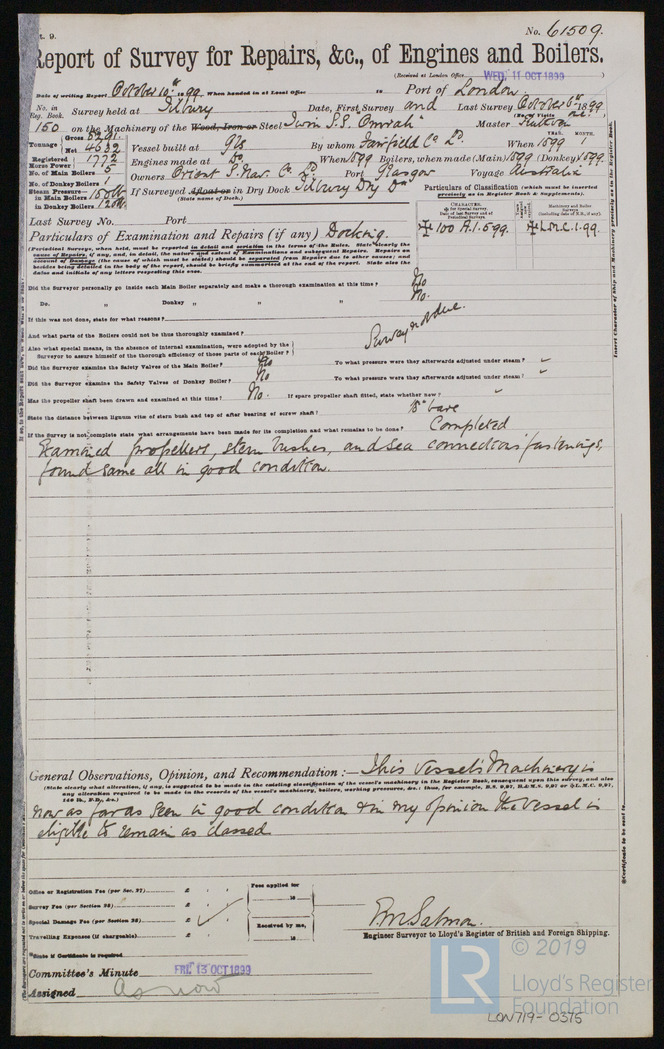 No. 61509.
Report of Survey for Repairs, &c., of Engines and Boilers.
(Received at London Office WED. 11 OCT 1899)
Date of writing Report October 10th 1899 When handed in at Local Office 18 Port of London
No. in Reg. Book. Survey held at Tilbury Date, First Survey and Last Survey October 6th 1899
150 on the Machinery of the Wood, Iron or Steel Twin S.S. "Omrah" Master
Tonnage Gross 8291 Net 4632 Vessel built at Gls By whom Fairfield Co Ld. When 1899 1
Registered Horse Power 1772 Engines made at Do When 1899 Boilers, when made (Main) 1899 (Donkey) 1899
No. of Main Boilers 5 Owners Orient S. Nav. Co. Ld Port Glasgow Voyage Australia
No. of Donkey Boilers 1
Steam Pressure in Main Boilers
in Donkey Boilers
If Surveyed Afloat or in Dry Dock Tilbury Dry Dk
(State name of Dock.)
Particulars of Classification (which must be inserted precisely as in Register Book & Supplements).
Last Survey No. Port
✠ 100 A.1. 5.99. ✠ L.M.C. 1.99.
Particulars of Examination and Repairs (if any) Docking.
(Periodical Surveys, when held, must be reported in detail and seriatim in the terms of the Rules. State clearly the
cause of Repairs, if any, and, in detail, the nature and extent of Examinations and subsequent Repairs. Repairs on
account of Damage (the cause of which must be stated) should be separated from Repairs due to other causes; and
besides being detailed in the body of the report, should be briefly summarised at the end of the report. State also the
dates and initials of any letters respecting this case.
Did the Surveyor personally go inside each Main Boiler separately and make a thorough examination at this time? No
Do. " Donkey " " " No.
If this was not done, state for what reasons? Survey not due.
And what parts of the Boilers could not be thus thoroughly examined?
Also what special means, in the absence of internal examination, were adopted by the
Surveyor to assure himself of the thorough efficiency of those parts of each Boiler?
Did the Surveyor examine the Safety Valves of the Main Boiler? No To what pressure were they afterwards adjusted under steam?
Did the Surveyor examine the Safety Valves of Donkey Boiler? No To what pressure were they afterwards adjusted under steam?
Has the propeller shaft been drawn and examined at this time? No. If spare propeller shaft fitted, state whether new?
State the distance between lignum vitæ of stern bush and top of after bearing of screw shaft? bare
If the Survey is not complete state what arrangements have been made for its completion and what remains to be done? Completed
Examined propellers, stern bushes, and sea connections fastenings,
found same all in good condition.
General Observations, Opinion, and Recommendation:— This Vessel's Machinery is
(State clearly what alteration, if any, is suggested to be made in the existing classification of the vessel's machinery in the Register Book, consequent upon this survey, and also
any alteration required to be made in the records of the vessel's machinery, boilers, working pressures, &c.: thus, for example, B.S. 9,97, B.&M.S. 9,97 or ✠L.M.C. 9,97,
140 lb., F.D., &c.)
now as far as seen in good condition & in my opinion the Vessel is
eligible to remain as classed
Office or Registration Fee (per Sec. 27) £
Survey Fee (per Section 28) £
Special Damage Fee (per Section 28) £
Travelling Expenses (if chargeable) £
Fees applied for 18
Received by me, 18
Salmon.
Engineer Surveyor to Lloyd's Register of British and Foreign Shipping.
*State if Certificate is required
Committee's Minute FRI. 13 OCT 1899
Assigned as now
© 2019
LR
Lloyd's Register
Foundation
LON719-0375